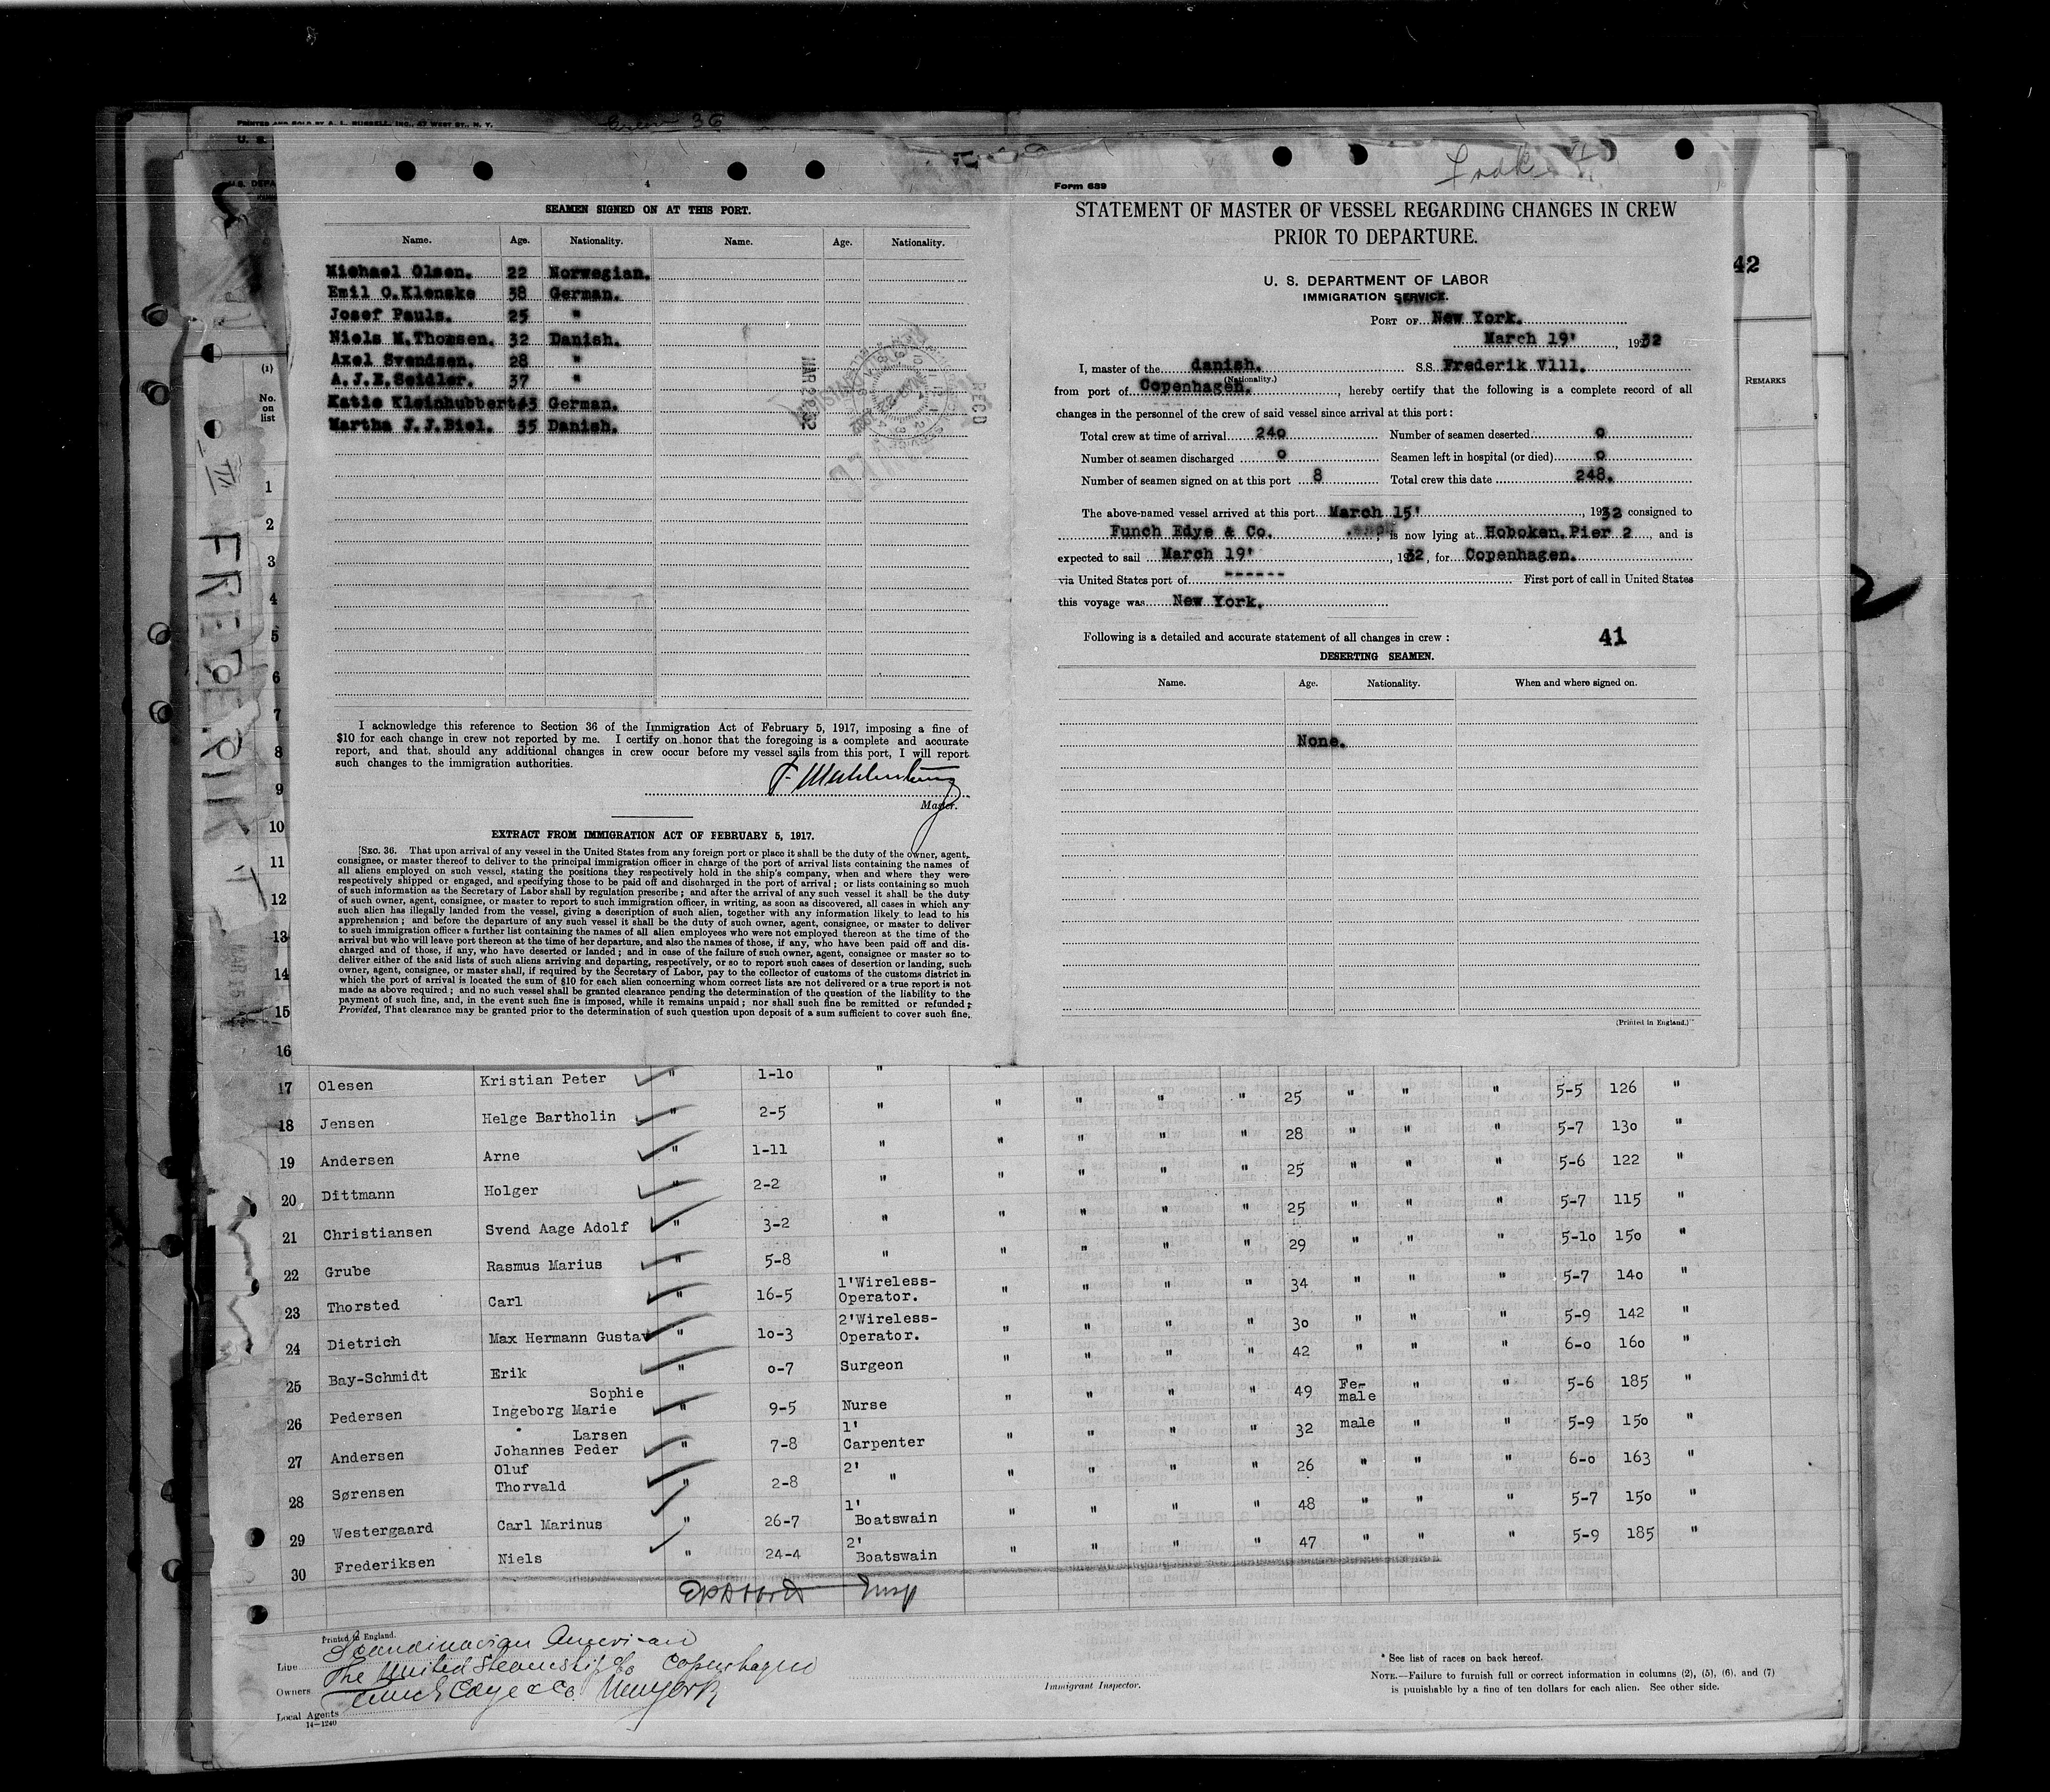 PRINTED AND SOLD BY A. L. RUSSELL, INC., 47 WEST ST., N. Y.
36
4
SEAMEN SIGNED ON AT THIS PORT.
Name. Age. Nationality. Name. Age. Nationality.
Michael Olsen. 22 Norwegian.
Emil O. Klenske 38 German.
Josef Pauls. 25 "
Niels M. Thomsen. 32 Danish.
Axel Svendsen. 28 "
A.J.E. Seidler. 37 "
Katie Kleinhubbert. 43 German.
Martha J.J. Biel. 35 Danish.
MAR 22 32
REC'D
I acknowledge this reference to Section 36 of the Immigration Act of February 5, 1917, imposing a fine of
$10 for each change in crew not reported by me. I certify on honor that the foregoing is a complete and accurate
report, and that, should any additional changes in crew occur before my vessel sails from this port, I will report
such changes to the immigration authorities.
Master.
EXTRACT FROM IMMIGRATION ACT OF FEBRUARY 5, 1917.
[SEC. 36. That upon arrival of any vessel in the United States from any foreign port or place it shall be the duty of the owner, agent,
consignee, or master thereof to deliver to the principal immigration officer in charge of the port of arrival lists containing the names of
all aliens employed on such vessel, stating the positions they respectively hold in the ship's company, when and where they were
respectively shipped or engaged, and specifying those to be paid off and discharged in the port of arrival; or lists containing so much
of such information as the Secretary of Labor shall by regulation prescribe; and after the arrival of any such vessel it shall be the duty
of such owner, agent, consignee, or master to report to such immigration officer, in writing, as soon as discovered, all cases in which any
such alien has illegally landed from the vessel, giving a description of such alien, together with any information likely to lead to his
apprehension; and before the departure of any such vessel it shall be the duty of such owner, agent, consignee, or master to deliver
to such immigration officer a further list containing the names of all alien employees who were not employed thereon at the time of the
arrival but who will leave port thereon at the time of her departure, and also the names of those, if any, who have been paid off and dis-
charged and of those, if any, who have deserted or landed; and in case of the failure of such owner, agent, consignee or master so to
deliver either of the said lists of such aliens arriving and departing, respectively, or so to report such cases of desertion or landing, such
owner, agent, consignee, or master shall, if required by the Secretary of Labor, pay to the collector of customs of the customs district in
which the port of arrival is located the sum of $10 for each alien concerning whom correct lists are not delivered or a true report is not
made as above required; and no such vessel shall be granted clearance pending the determination of the question of the liability to the
payment of such fine, and, in the event such fine is imposed, while it remains unpaid; nor shall such fine be remitted or refunded;
Provided, That clearance may be granted prior to the determination of such question upon deposit of a sum sufficient to cover such fine.
Form 689
STATEMENT OF MASTER OF VESSEL REGARDING CHANGES IN CREW
PRIOR TO DEPARTURE.
U. S. DEPARTMENT OF LABOR
IMMIGRATION SERVICE.
PORT OF New York.
March 19' , 1932
I, master of the danish. S.S. Frederik Vlll.
(Nationality.)
from port of Copenhagen. , hereby certify that the following is a complete record of all
changes in the personnel of the crew of said vessel since arrival at this port:
Total crew at time of arrival 240 Number of seamen deserted 0
Number of seamen discharged 0 Seamen left in hospital (or died) 0
Number of seamen signed on at this port 8 Total crew this date 248.
The above-named vessel arrived at this port March 15' , 1932 consigned to
Funch Edye & Co. , is now lying at Hoboken. Pier 2 , and is
expected to sail March 19' , 1932, for Copenhagen.
via United States port of ------ First port of call in United States
this voyage was New York.
Following is a detailed and accurate statement of all changes in crew: 41
DESERTING SEAMEN.
Name. Age. Nationality. When and where signed on.
None.
(Printed in England.)
42
REMARKS
(1)
No.
on
list
1
2
3
4
5
6
7
8
9
10
11
12
13
14
15
16
FREDERIK
MAR 15
17 Olesen Kristian Peter " 1-10 " " " " 25 " " " 5-5 126 "
18 Jensen Helge Bartholin " 2-5 " " " " " 28 " " " 5-7 130 "
19 Andersen Arne " 1-11 " " " " " 25 " " " 5-6 122 "
20 Dittmann Holger " 2-2 " " " " " 25 " " " 5-7 115 "
21 Christiansen Svend Aage Adolf " 3-2 " " " " " 29 " " " 5-10 150 "
22 Grube Rasmus Marius " 5-8 " " " " " 34 " " " 5-7 140 "
23 Thorsted Carl " 16-5 1'Wireless-Operator. " " " " 30 " " " 5-9 142 "
24 Dietrich Max Hermann Gustav " 10-3 2'Wireless-Operator. " " " " 42 " " " 6-0 160 "
25 Bay-Schmidt Erik " 0-7 Surgeon " " " " 49 Fe-male " " 5-6 185 "
26 Pedersen Sophie Ingeborg Marie " 9-5 Nurse " " " " 32 male " " 5-9 150 "
27 Andersen Larsen Johannes Peder " 7-8 1' Carpenter " " " " 26 " " " 6-0 163 "
28 Sørensen Oluf Thorvald " 2-8 2' " " " " " 48 " " " 5-7 150 "
29 Westergaard Carl Marinus " 26-7 1' Boatswain " " " " 47 " " " 5-9 185 "
30 Frederiksen Niels " 24-4 2' Boatswain "
Printed in England.
Line Scandinavian American
Owners The United Steamship Co Copenhagen
Local Agents Funch Edye & Co New York
14-1240
Immigrant Inspector.
* See list of races on back hereof.
NOTE.—Failure to furnish full or correct information in columns (2), (5), (6), and (7)
is punishable by a fine of ten dollars for each alien. See other side.